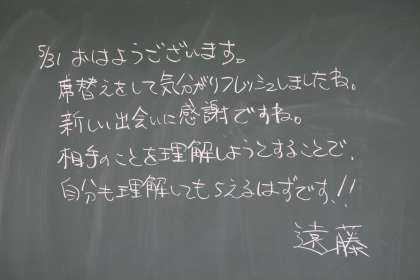 5/31 おはようございます。
席替えをして気分がリフレッシュしましたね。
新しい出会いに感謝ですね。
相手のことを理解しようとすることで、
自分も理解してもらえるはずです!!
遠藤